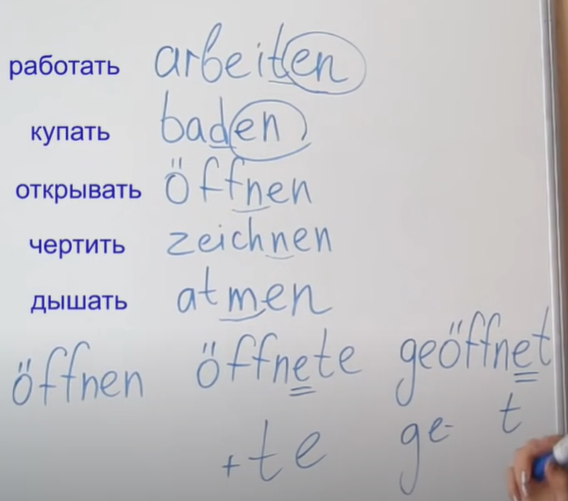 работать arbeiten
купать baden
открывать öffnen
чертить zeichnen
дышать atmen
öffnen öffnete geöffnet
+te ge- t